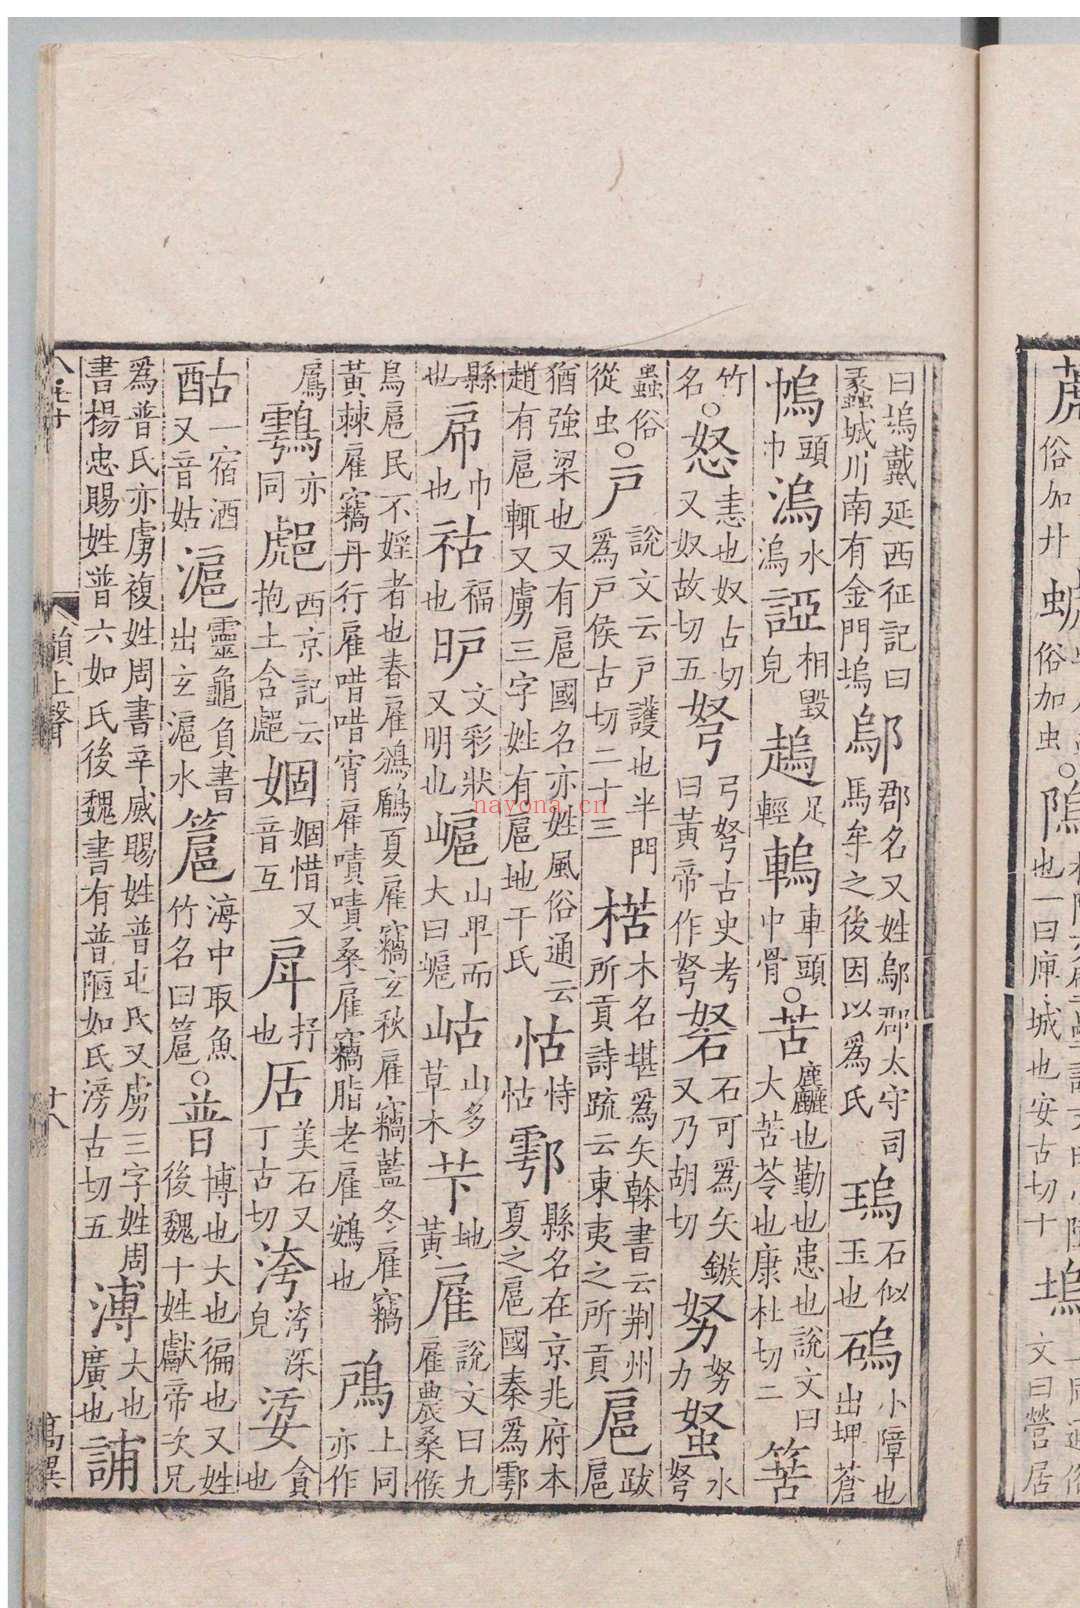 俗加廾 俗加虫○隖 也一曰庳城也安古切十 塢 文曰營居
曰塢戴延西征記曰蠡城川南有金門塢 鄔 郡名又姓鄔郡太守司馬牟之後因以爲氏 瑦 石似玉也 䃖 小障也出埤蒼
㡧 頭巾 溩 水溩 䛩 相毀皃 足輕 車頭中骨○苦 麤也勤也患也說文曰大苦苓也康杜切二
竹名○怒 恚也奴古切又奴故切五 弩 弓弩古史考曰黃帝作弩 砮 石可爲矢鏃又乃胡切 努 努力 水弩
蟲俗從虫○戶 說文云戶護也半門爲戶侯古切二十三 楛 木名堪爲矢榦書云荆州所貢詩疏云東夷之所貢 扈 跋扈
猶強梁也又有扈國名亦姓風俗通云趙有扈輒又虜三字姓有扈地干氏 怙 恃怙 鄠 縣名在京兆府本夏之扈國秦爲鄠
縣也 帍 巾也 祜 福也 昈 文彩狀又明也 山卑而大曰 岵 山多草木 芐 地黃 雇 說文曰九雇農桑候
鳥扈民不婬者也春雇鳻鶞夏雇竊玄秋雇竊藍冬雇竊黃棘雇竊丹行雇唶唶宵雇嘖嘖桑雇竊脂老雇鷃也 鳸 上同亦作
亦同 西京記云抱土含 婟 婟惜又音互 戽 抒也 㕆 美石又丁古切 洿 洿深皃 貪也
酤 一宿酒又音姑 滬 靈龜負書出玄滬水 簄 海中取魚竹名曰簄○普 博也大也徧也又姓後魏十姓獻帝次兄
爲普氏亦虜複姓周書辛威賜姓普屯氏又虜三字姓周書楊忠賜姓普六如氏後魏書有普陋如氏滂古切五 溥 大也廣也 誧
韻上聲 十八
nayona.cn